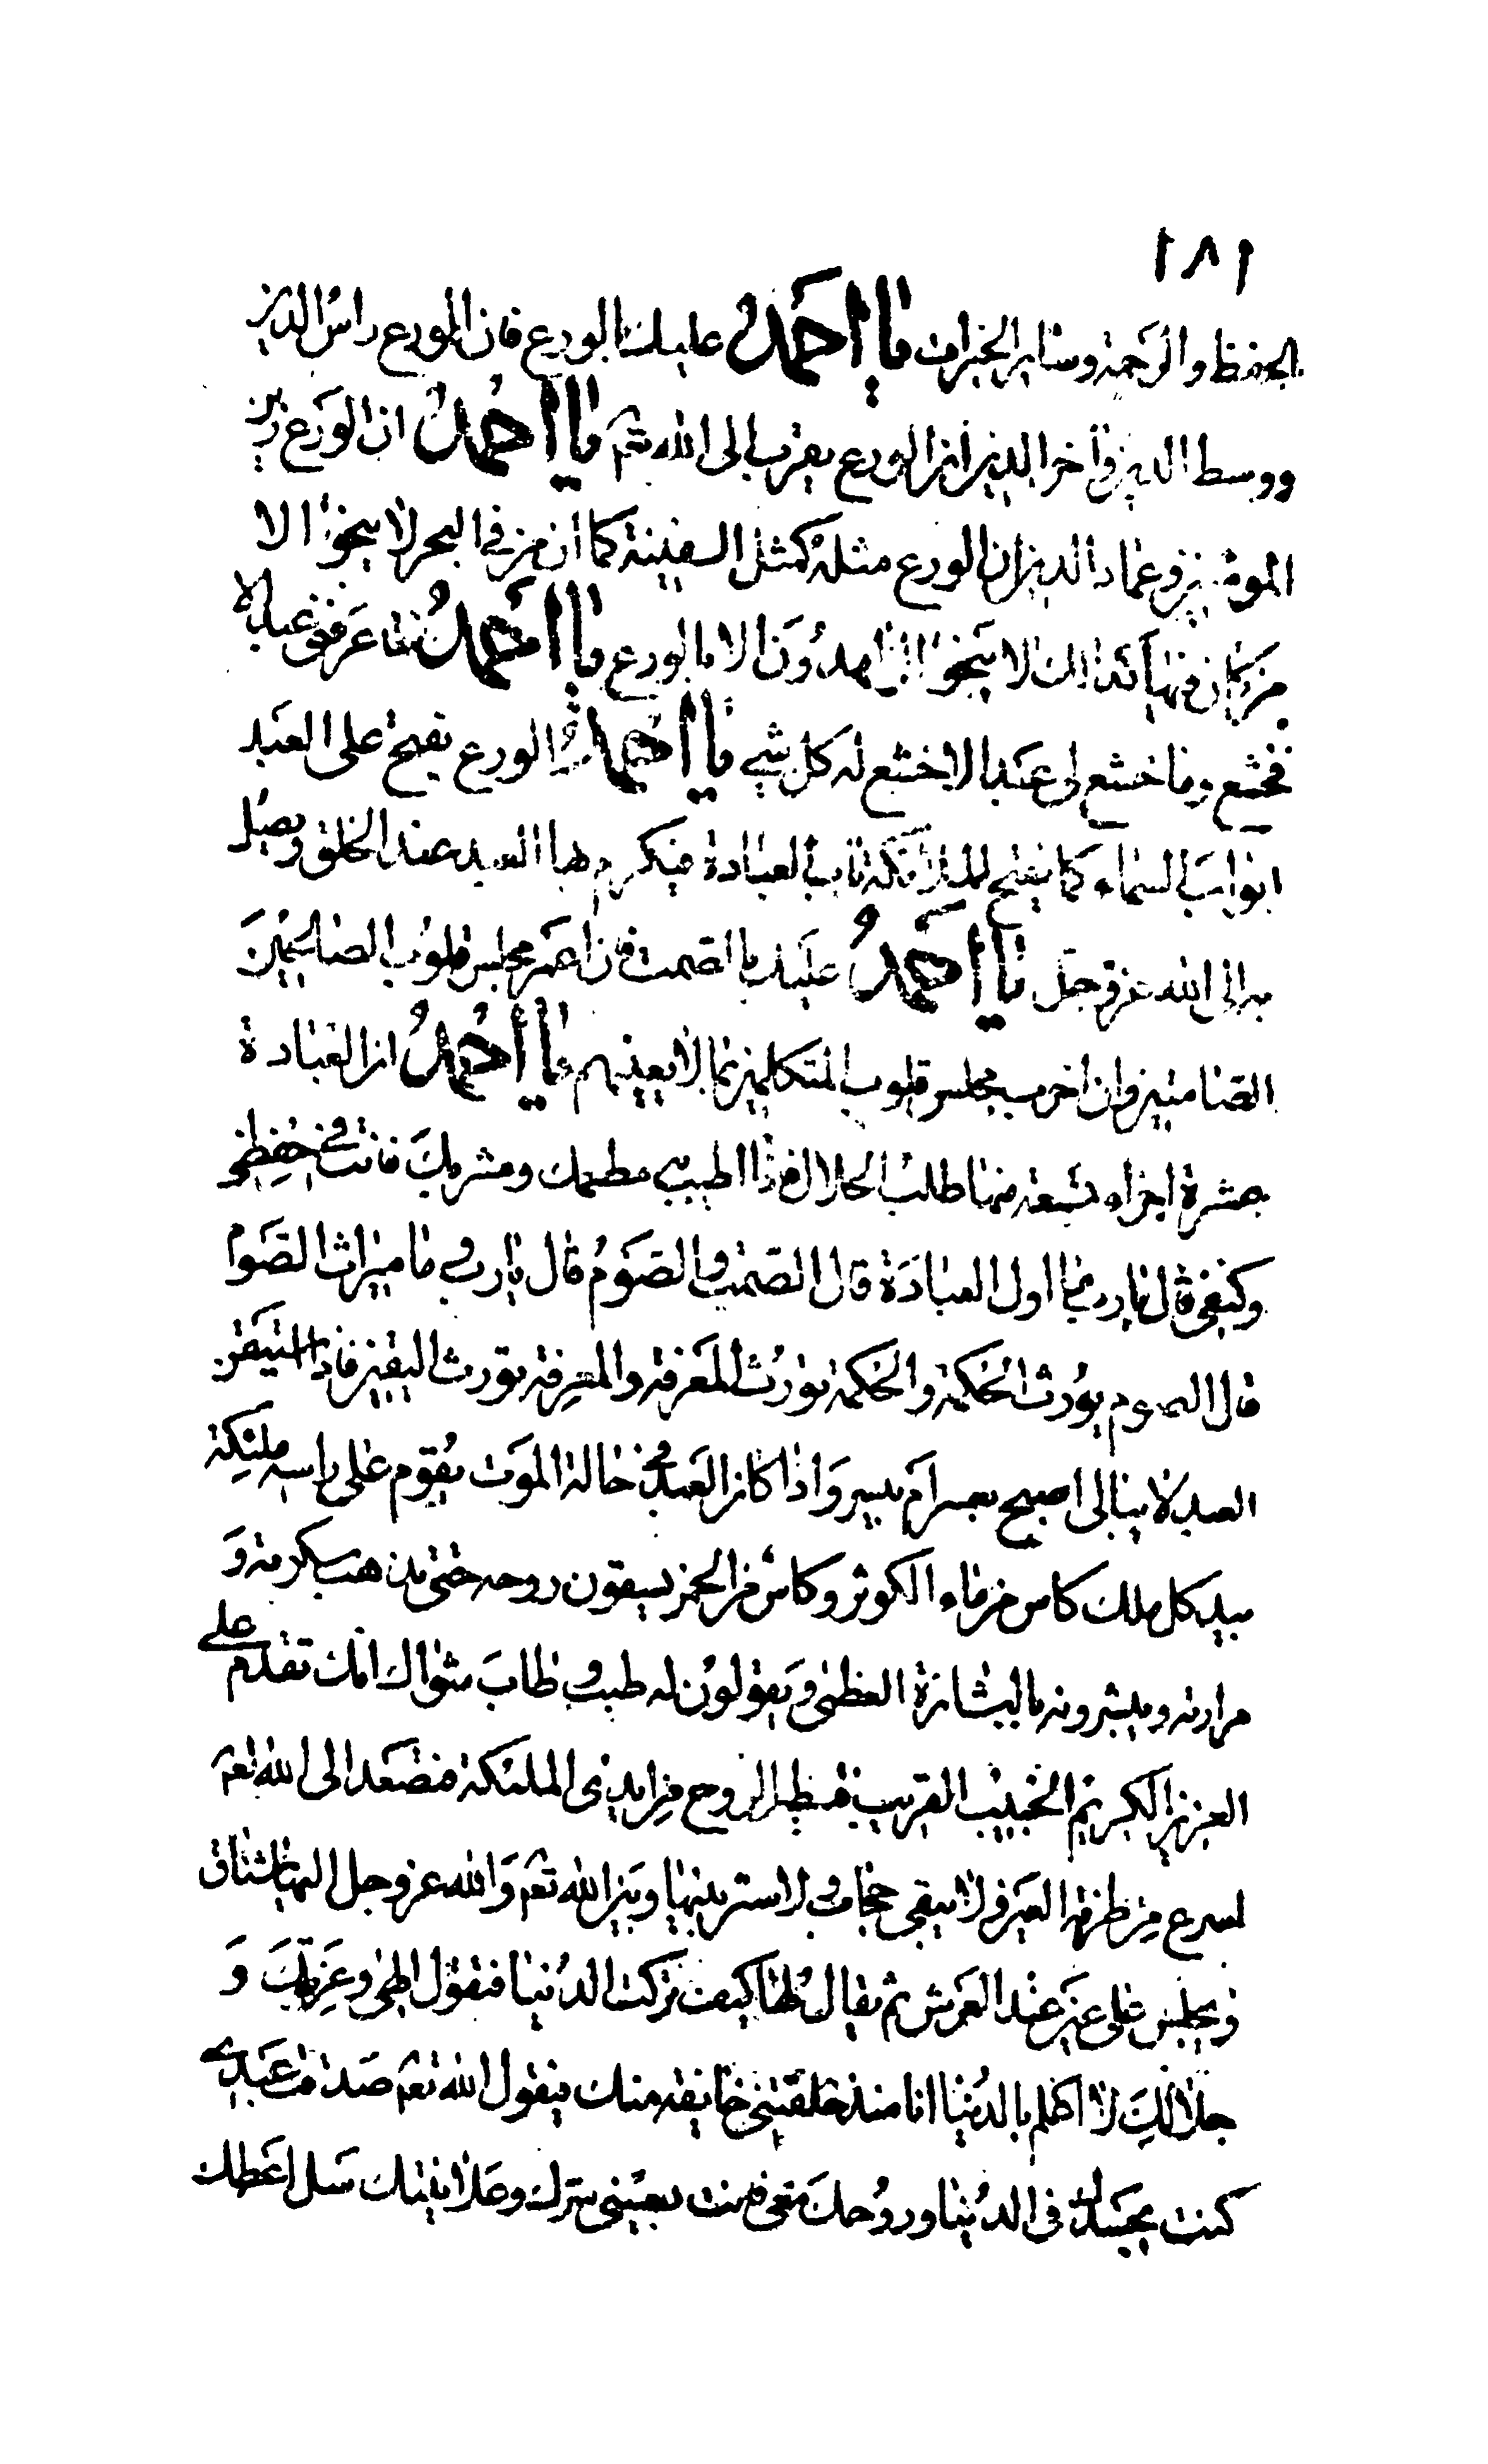 ١٨١
الحفظ والرحمة وسائر الخيرات يا احمد عليك بالورع فان الورع راس الدين
ووسط الدين واخر الدين ان الورع يقرب الى الله تعم يا احمد ان الورع زين
المؤمنين وعماد الدين ان الورع مثله كمثل السفينة كما ان من في البحر لا ينجوا الا
من كان فيها كذلك لا ينجوا الزاهدون الا بالورع يا احمد ما عرفني عبد الا
فخشع وما خشع لي عبد الا خشع له كل شيء يا احمد الورع يفتح على العبد
ابواب السماء كما يفتح للملائكة باب العبادة فيكرم بها العبد عند الخلق ويصل
به الى الله عز وجل يا احمد عليك بالصمت فان اعمر مجلس قلوب الصالحين
الصامتين وان اخرب مجلس قلوب المتكلمين بما لا يعنيهم يا احمد ان العبادة
عشرة اجزاء تسعة منها طلب الحلال فاذا اطيب مطعمك ومشربك فانت في حفظي
وكنفي قال يا رب ما اول العبادة قال الصمت والصوم قال يا رب وما ميراث الصوم
قال الصوم يورث الحكمة والحكمة تورث المعرفة والمعرفة تورث اليقين فاذا استيقن
العبد لا يبالي اصبح بعسر ام بيسر واذا كان العبد في حالة الموت يقوم على راسه ملئكة
بيد كل ملك كاس من ماء الكوثر وكاس من الخمر يسقون روحه حتى يذهب سكرته و
مرارته ويبشرونه بالبشارة العظمى ويقولون له طبت وطاب مثواك انك تقدم على
العزيز الكريم الحبيب القريب فتطير الروح من ايدي الملئكة فتصعد الى الله تعم
اسرع من طرفة العين ولا يبقى حجاب ولا ستر بينها وبين الله تعم والله عز وجل اليها مشتاق
ويجلس على عين عند العرش ثم يقال لها كيف تركت الدنيا فتقول الهي وعزتك و
جلالك لا اعلم بالدنيا انا منذ خلقتني خائفة منك فيقول الله تعم صدقت عبدي
كنت بجسدك في الدنيا وروحك معي فانت بعيني سرك وعلانيتك سل اعطك